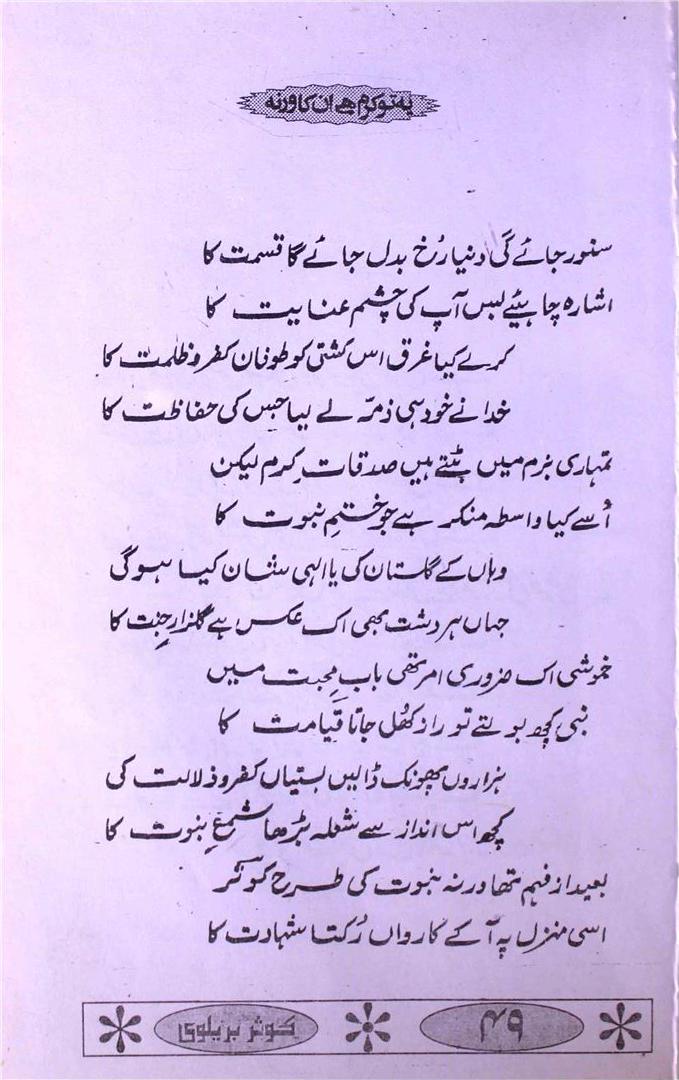 یہ تو کرم ہے ان کا ورنہ
سنور جائے گی دنیا رُخ بدل جائے گا قسمت کا
اشارہ چاہیئے بس آپ کی چشمِ عنایت کا
کرلے کیا غرق اس کشتی کو طوفان کفر و ظلمت کا
خدا نے خود ہی ذمّہ لے لیا جس کی حفاظت کا
تمہاری بزم میں بٹتے ہیں صدقاتِ کرم لیکن
اُسے کیا واسطہ منکر ہے جو ختمِ نبوت کا
وہاں کے گلستاں کی یا الہی شان کیا ہوگی
جہاں ہر دشت بھی اک عکس ہے گلزارِ جنت کا
خموشی اک ضروری امر تھی بابِ محبت میں
نبی کچھ بولتے تو راز کھُل جاتا قیامت کا
ہزاروں پھونک ڈالیں بستیاں کفر و ذلالت کی
کچھ اس انداز سے شعلہ بڑھا شمعِ نبوت کا
بعید از فہم تھا ورنہ نبوت کی طرح کوثر
اسی منزل پہ آ کے کارواں رُکتا شہادت کا
۴۹
کوثر بریلوی